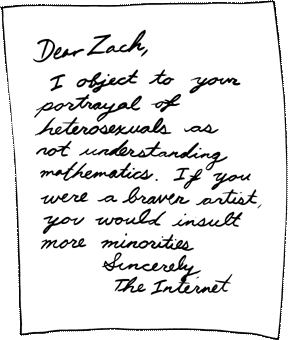 Dear Zach,
I object to your
portrayal of
heterosexuals as
not understanding
mathematics. If you
were a braver artist,
you would insult
more minorities
Sincerely,
The Internet